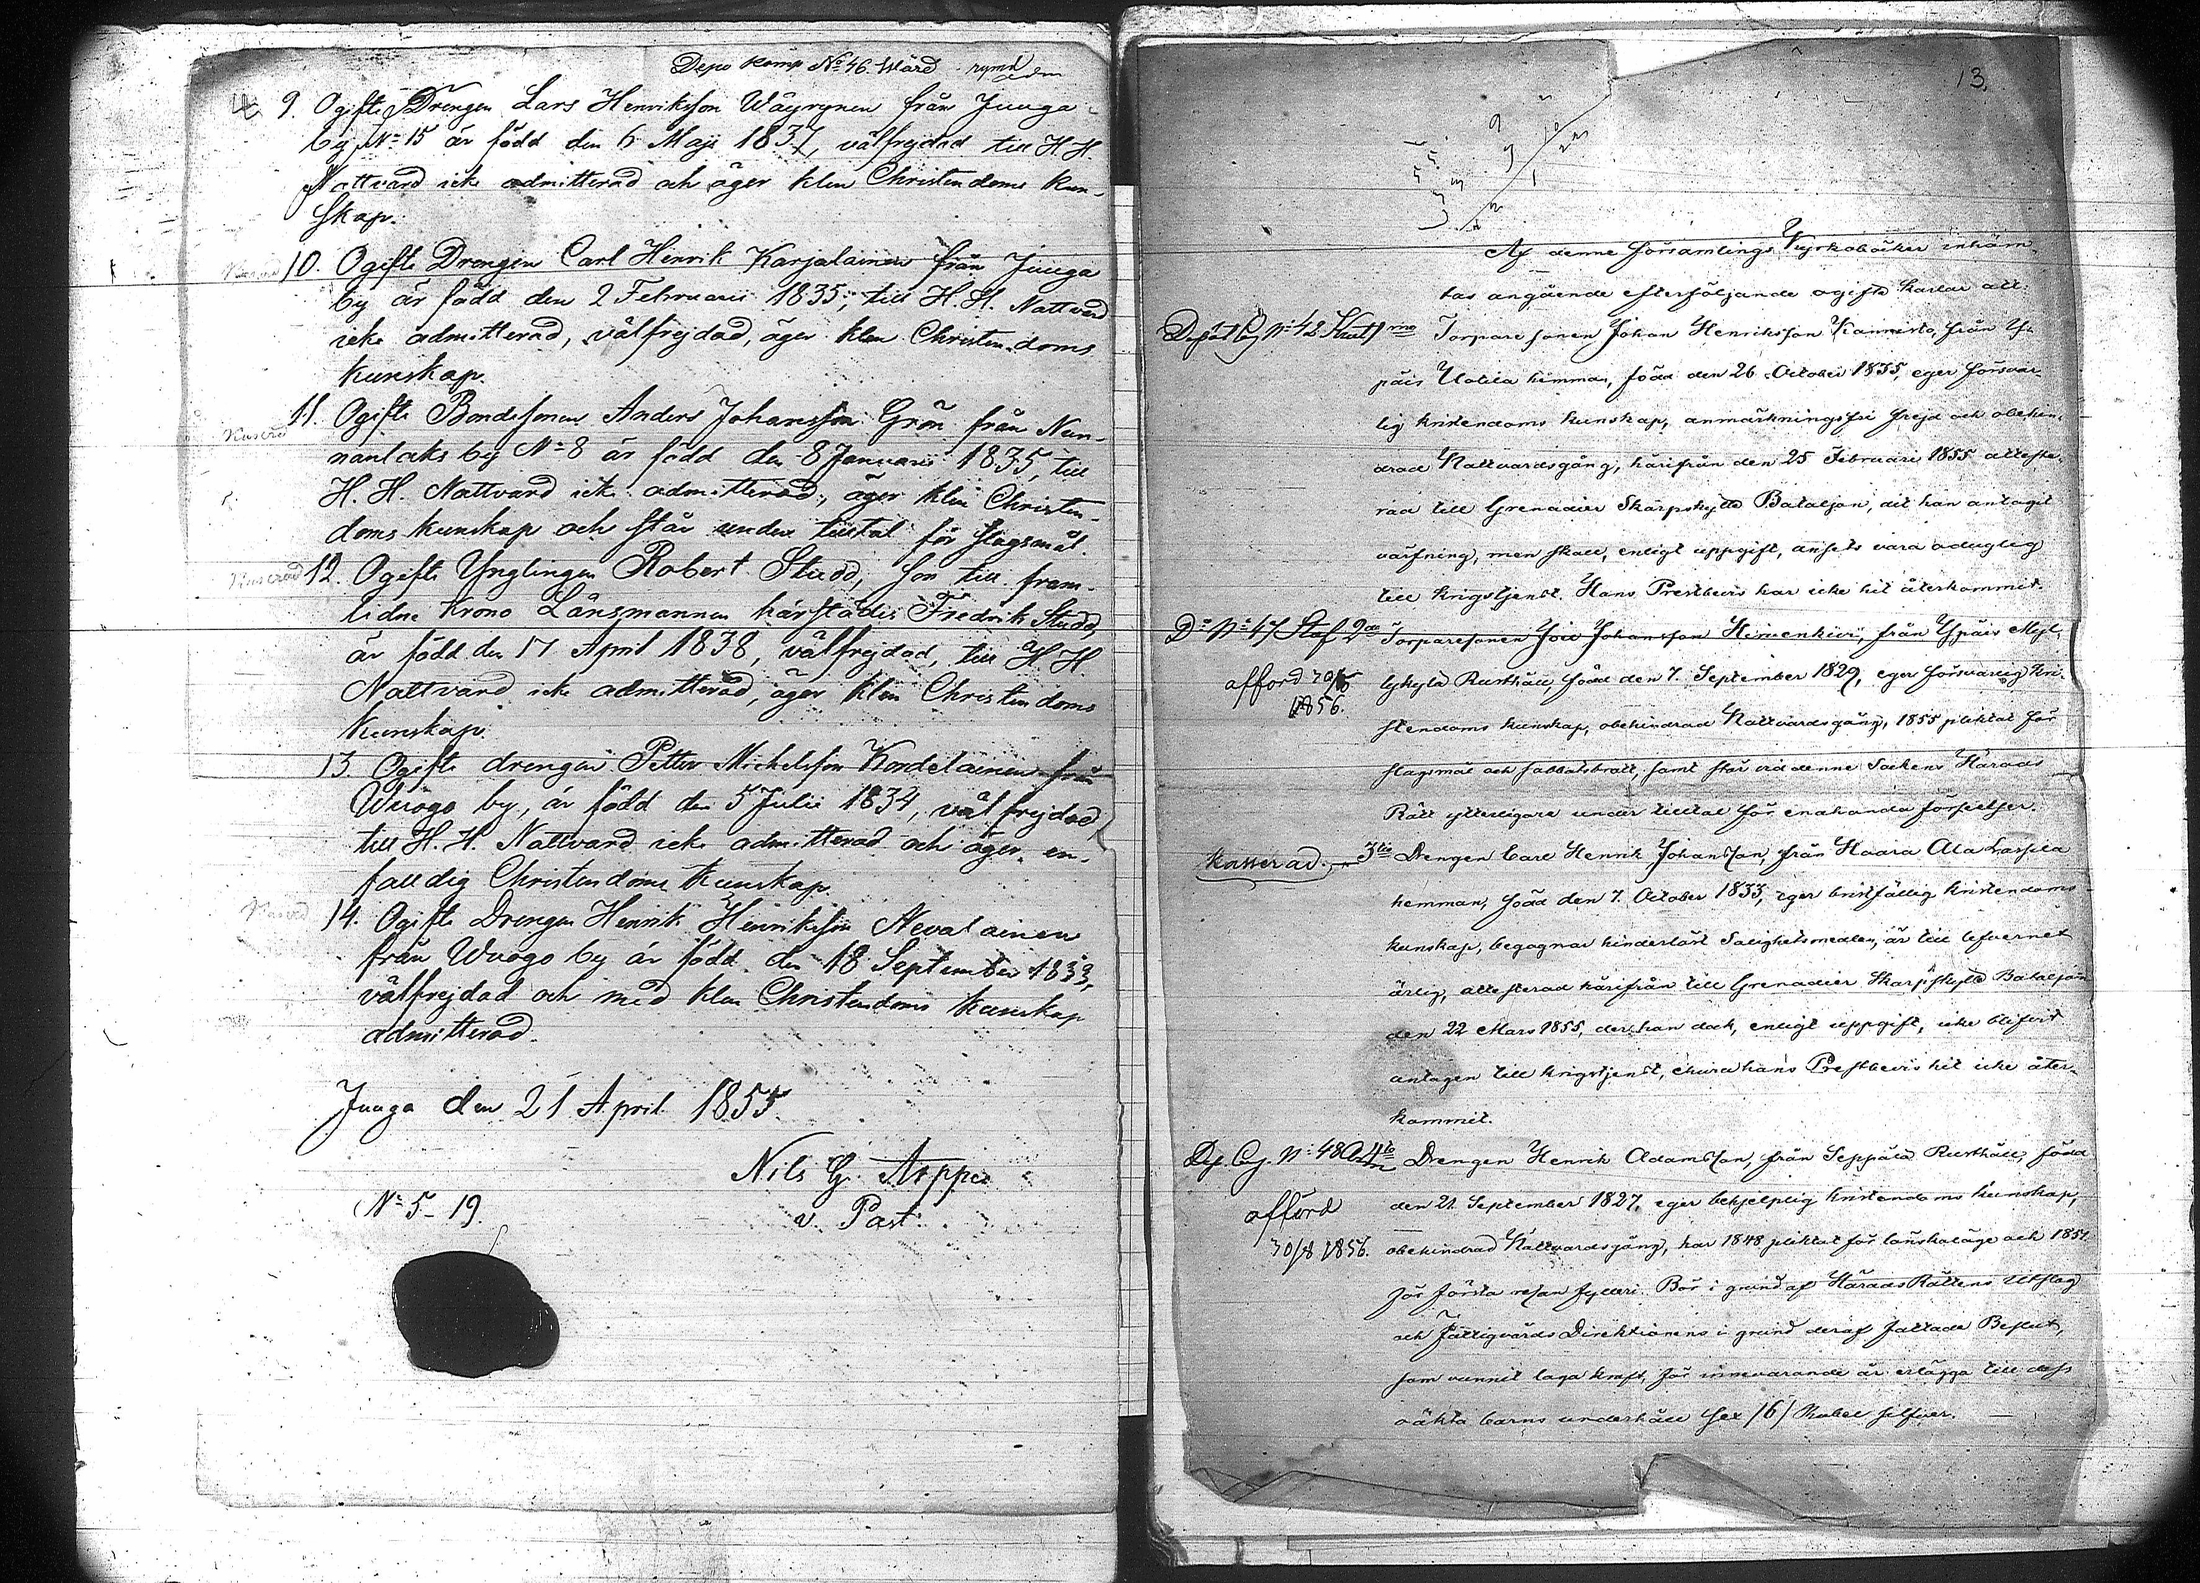 Depo Komp No 46. Wärd rymd
4 9. Ogifte Drengen Lars Henriksson Wäyrynen från Juuga
by No 15 är född den 6 Maji 1837, välfrejdad till H. H.
Nattvard icke admitterad och äger klen Christendoms kun-
skap.
10. Ogifte Drengen Carl Henrik Karjalainen från Juuga
by är född den 2 Februarii 1835, till H. H. Nattvard
icke admitterad, välfrejdad, äger klen Christendoms
kunskap.
Kasserad 11. Ogifte Bondesonen Anders Johansson Grön från Nun-
nanlaks by No 8 är född den 8 Januarii 1835, till
H. H. Nattvard icke admitterad, äger klen Christen-
doms kunskap och står under tilltal för slagsmål.
Kasserad 12. Ogifte Ynglingen Robert Studd, son till fram-
lidne Krono Länsmannen härstädes Fredrik Studd,
är född den 17 April 1838, välfrejdad, till H. H.
Nattvard icke admitterad, äger klen Christendoms
kunskap.
13. Ogifte drengen Petter Michelsson Kordelainen från
Wuogo by, är född den 5 Julii 1834, välfrejdad
till H. H. Nattvard icke admitterad och äger en-
faldig Christendoms kunskap.
14. Ogifte Drengen Henrik Henriksson Nevalainen
från Wuogo by är född den 18 September 1833,
välfrejdad och med klen Christendoms kunskap
admitterad.
Juuga den 21 April 1855.
Nils G. Arppe
v. Past.
No 5-19.
13.
Af denne församlings Kyrkoböcker inhäm-
tas angående efterföljande ogifte karlar att:
1mo Torparesonen Johan Henriksson Kannisto, från Y-
päis Uotila hemman, född den 26 October 1835, eger försvar-
lig kristendoms kunskap, anmärkningsfri frejd och obehin-
drad Nattvardsgång, härifrån den 25 Februari 1855 atteste-
rad till Grenadier Skarpskytte Bataljon, dit han antagit
värfning, men skall, enligt uppgift, ansets vara oduglig
till krigstjenst. Hans Prestbevis har icke hit återkommit.
Do No 47 2do Torparesonen Johansson Hirvenkivi, från Ypäis Myl-
lykylä Rusthåll, född den 7. September 1829, eger försvarlig kri-
afförd
1856.
stendoms kunskap, obehindrad Nattvardsgång, 1855 pliktat för
slagsmål och sabbatsbrott, samt står vid denne Sockens Härads
Rätt ytterligare under tilltal för enahanda förseelser.
Kasserad. 3tio Drengen Carl Henrik Johansson, från Haara Ala Lassila
hemman, född den 7. October 1833, eger bristfällig kristendoms
kunskap, begagnar hinderlöst Salighetsmedlen, är till lefvernet
ärlig, attesterad härifrån till Grenadier Skarpskytte Bataljon
den 22 Mars 1855, der han dock, enligt uppgift, icke blifvit
antagen till krigstjenst, ehuru hans Prestbevis hit icke åter-
kommit.
Dep. Cy. No 48 4to Drengen Henrik Adamsson, från Seppälä Rusthåll, född
den 21 September 1827, eger behjelplig kristendoms kunskap,
afförd
30/8 1856.
obehindrad Nattvardsgång, har 1848 pliktat för lönskaläge och 1851
för första resan fylleri. Bör i grund af HäradsRättens Utslag
och Fattigvårds Direktionens i grund deraf fattade Beslut,
som vunnit laga kraft, för innevarande år erlägga till dess
oäkta barns underhåll sex /6/ Rubel silfver.